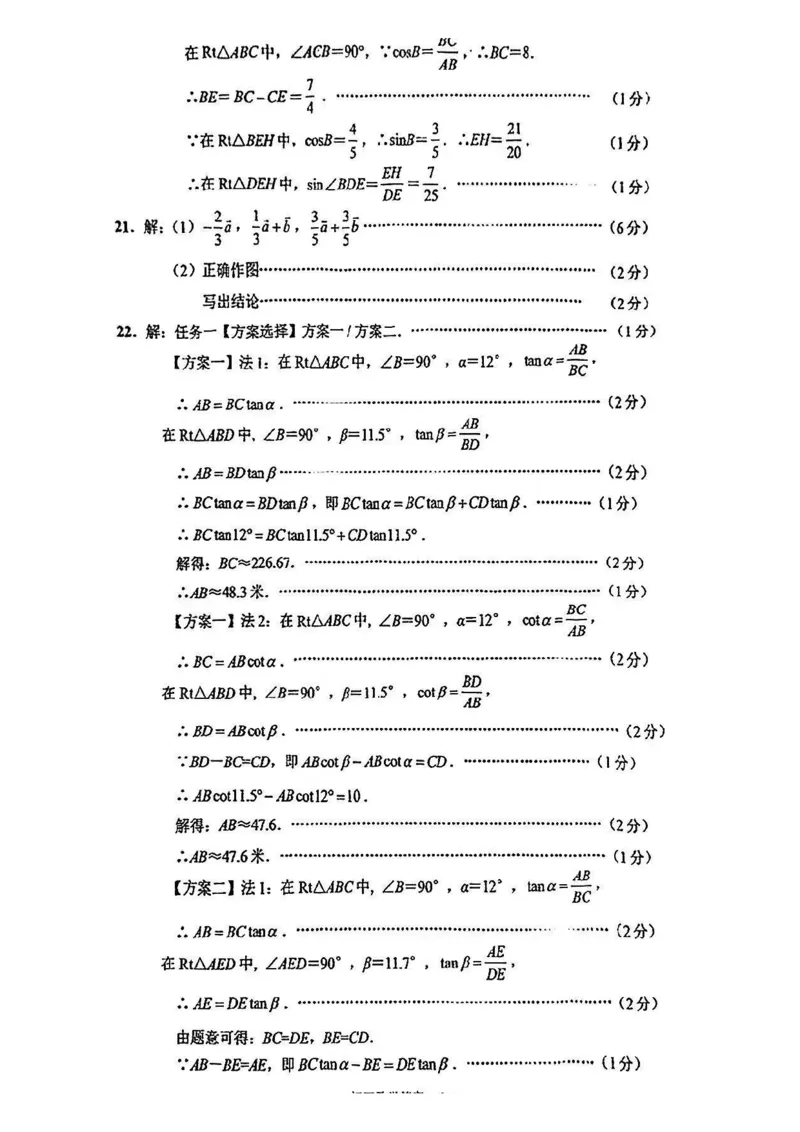 在Rt△ABC中，∠ACB=90°，∵cosB=BC/AB，∴BC=8.
∴BE=BC-CE=7/4．……（1分）
∵在Rt△BEH中，cosB=4/5，∴sinB=3/5．∴EH=21/20．（1分）
∴在Rt△DEH中，sin∠BDE=EH/DE=7/25．……（1分）
21．解：（1）-2/3 a⃗，1/3 a⃗+b⃗，3/5 a⃗+3/5 b⃗……（6分）
（2）正确作图……（2分）
写出结论……（2分）
22．解：任务一【方案选择】方案一/方案二．……（1分）
【方案一】法1：在Rt△ABC中，∠B=90°，α=12°，tanα=AB/BC，
∴AB=BCtanα．……（2分）
在Rt△ABD中，∠B=90°，β=11.5°，tanβ=AB/BD，
∴AB=BDtanβ……（2分）
∴BCtanα=BDtanβ，即BCtanα=BCtanβ+CDtanβ．……（1分）
∴BCtan12°=BCtan11.5°+CDtan11.5°．
解得：BC≈226.67．……（2分）
∴AB≈48.3米．……（1分）
【方案一】法2：在Rt△ABC中，∠B=90°，α=12°，cotα=BC/AB，
∴BC=ABcotα．……（2分）
在Rt△ABD中，∠B=90°，β=11.5°，cotβ=BD/AB，
∴BD=ABcotβ．……（2分）
∵BD－BC=CD，即ABcotβ-ABcotα=CD．……（1分）
∴ABcot11.5°-ABcot12°=10．
解得：AB≈47.6．……（2分）
∴AB≈47.6米．……（1分）
【方案二】法1：在Rt△ABC中，∠B=90°，α=12°，tanα=AB/BC，
∴AB=BCtanα．……（2分）
在Rt△AED中，∠AED=90°，β=11.7°，tanβ=AE/DE，
∴AE=DEtanβ．……（2分）
由题意可得：BC=DE，BE=CD．
∵AB－BE=AE，即BCtanα-BE=DEtanβ．……（1分）